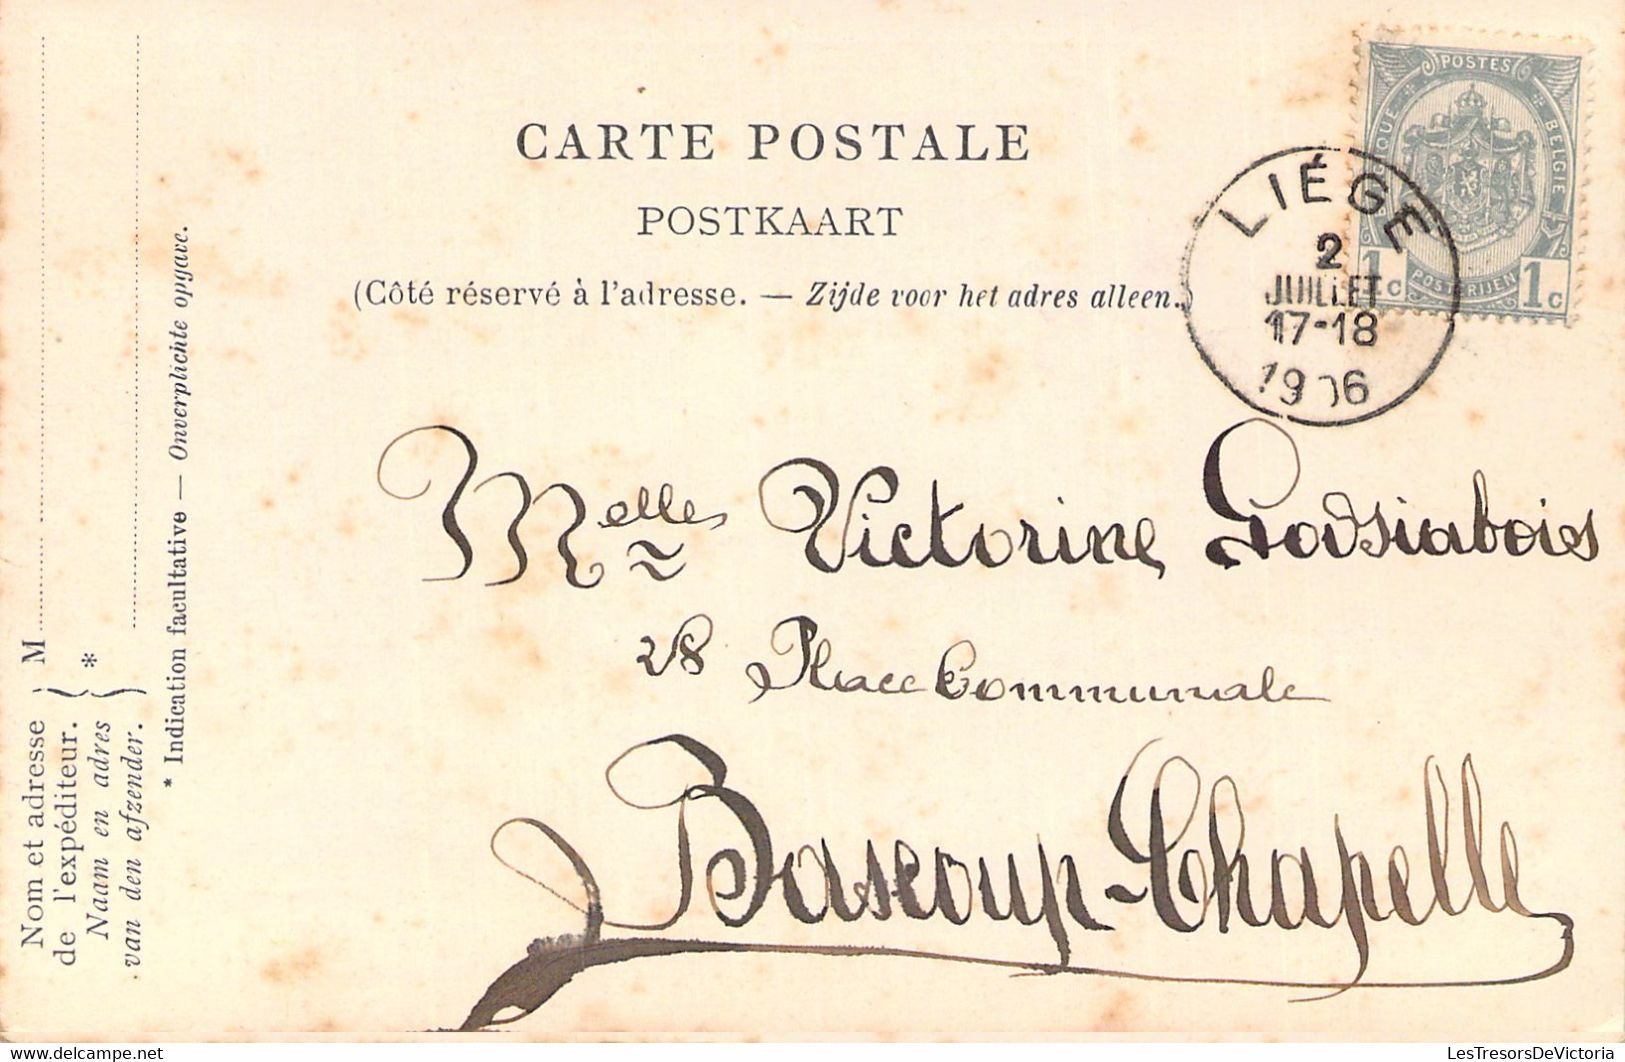 CARTE POSTALE
POSTKAART
(Côté réservé à l'adresse. — Zijde voor het adres alleen.)
POSTES
BELGIE
POSTERIJEN
1c
1c
LIÉGE
2
JUILLET
17-18
1906
Melle Victorine
28 Place Communale
Bascoup-Chapelle
Nom et adresse
de l'expéditeur.
Naam en adres
van den afzender.
M
*
* Indication facultative — Onverplichte opgave.
delcampe.net
LesTresorsDeVictoria